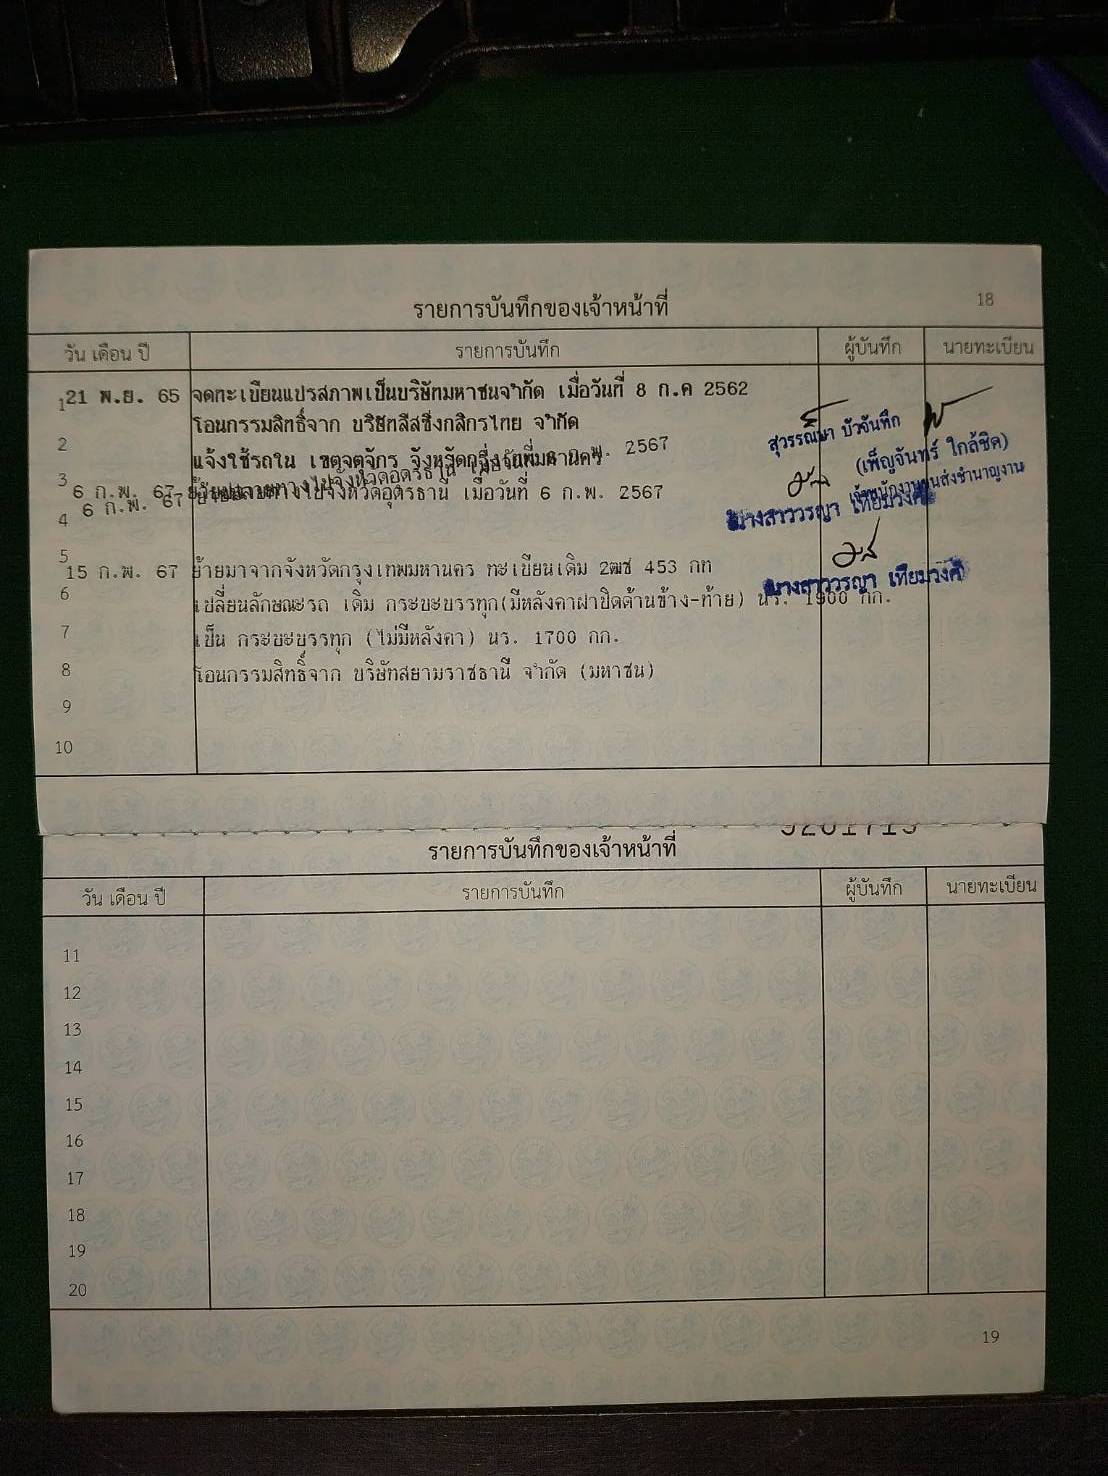 18
รายการบันทึกของเจ้าหน้าที่
วัน เดือน ปี รายการบันทึก ผู้บันทึก นายทะเบียน
1 21 พ.ย. 65 จดทะเบียนแปรสภาพเป็นบริษัทมหาชนจำกัด เมื่อวันที่ 8 ก.ค 2562
โอนกรรมสิทธิ์จาก บริษัทลีสซิ่งกสิกรไทย จำกัด
สุวรรณษา บัวจันทึก
2
แจ้งใช้รถใน เขตจตุจักร จังหวัดกรุงเทพมหานคร
(เพ็ญจันทร์ ใกล้ชิด)
เจ้าพนักงานขนส่งชำนาญงาน
3 6 ก.พ. 67 ย้ายปลายทางไปจังหวัดอุดรธานี 2567
6 ก.พ. 67 ย้ายปลายทางไปจังหวัดอุดรธานี เมื่อวันที่ 6 ก.พ. 2567
นางสาววรญา เทียมวงศ์
4
5
15 ก.พ. 67 ย้ายมาจากจังหวัดกรุงเทพมหานคร ทะเบียนเดิม 2ฒช 453 กท
นางสาววรญา เทียมวงศ์
6 เปลี่ยนลักษณะรถ เดิม กระบะบรรทุก(มีหลังคาฝาปิดด้านข้าง-ท้าย) นร. 1900 กก.
7 เป็น กระบะบรรทุก (ไม่มีหลังคา) นร. 1700 กก.
8 โอนกรรมสิทธิ์จาก บริษัทสยามราชธานี จำกัด (มหาชน)
9
10
รายการบันทึกของเจ้าหน้าที่
วัน เดือน ปี รายการบันทึก ผู้บันทึก นายทะเบียน
11
12
13
14
15
16
17
18
19
20
19